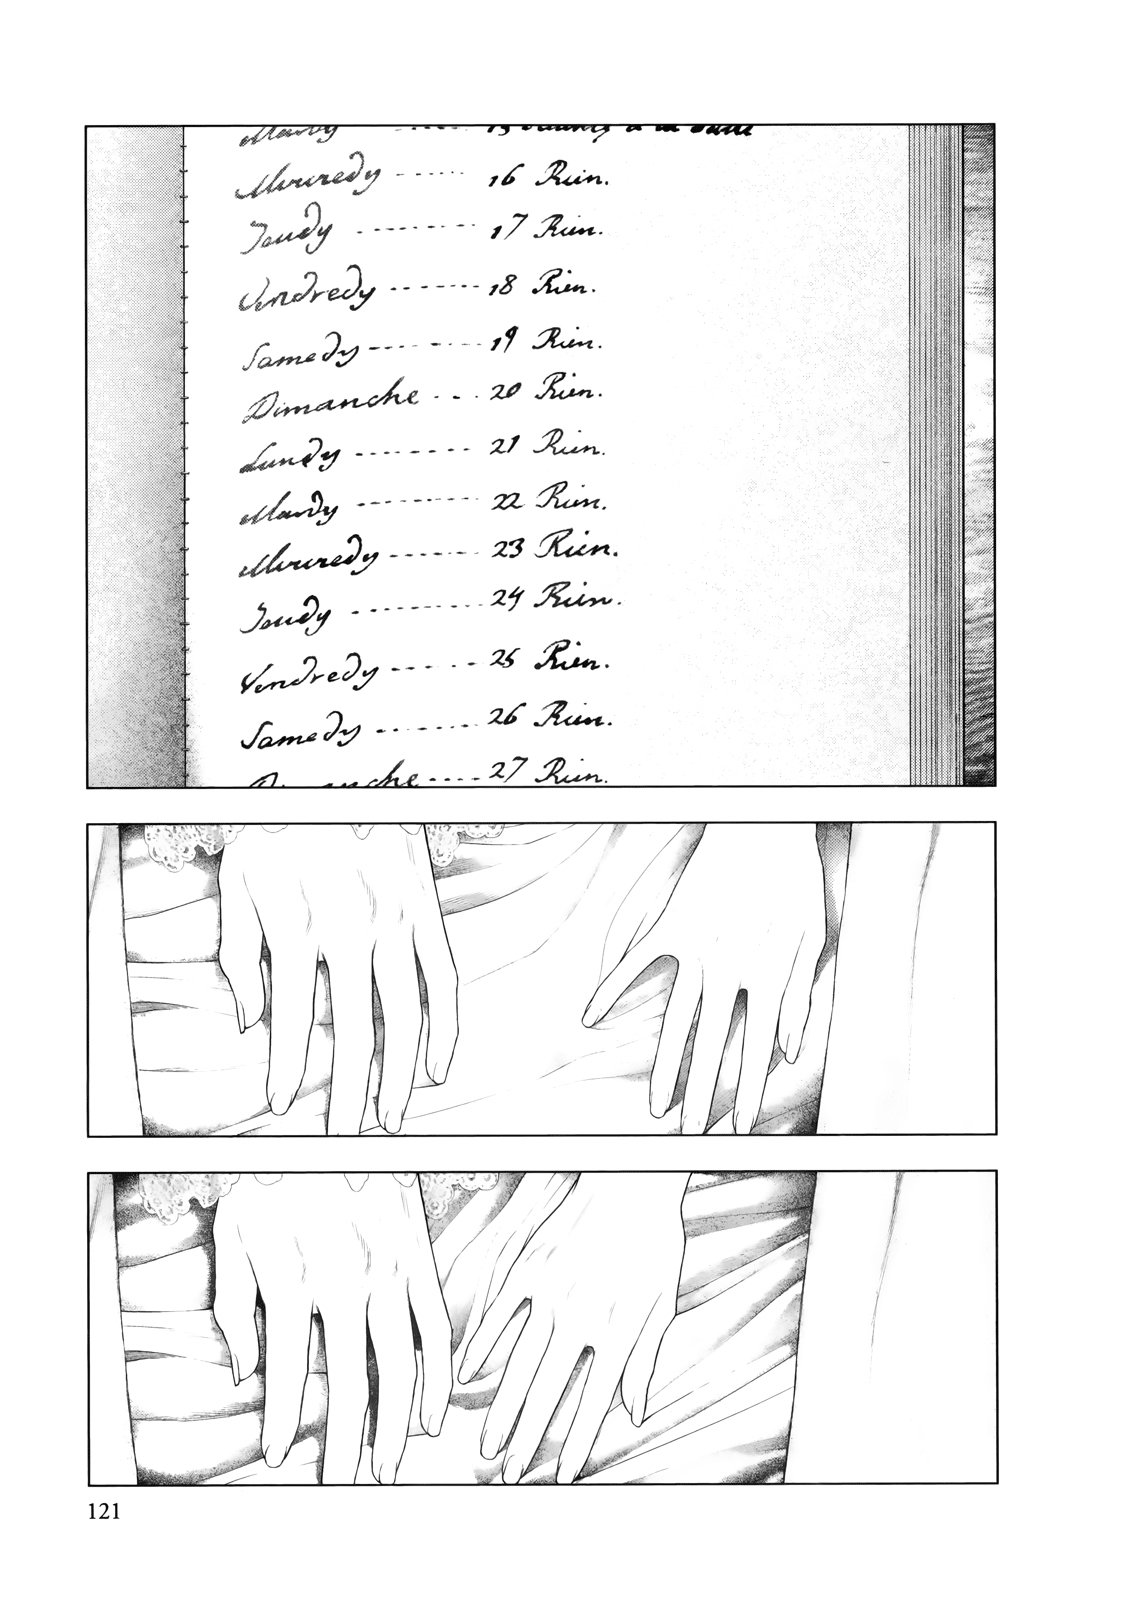 Mardy ---- 15
Mercredy ------ 16 Rien.
Jeudy --------- 17 Rien.
Vendredy ------- 18 Rien.
Samedy --------- 19 Rien.
Dimanche --- 20 Rien.
Lundy -------- 21 Rien.
Mardy --------- 22 Rien.
Mercredy ------- 23 Rien.
Jeudy ---------- 24 Rien.
Vendredy ------ 25 Rien.
Samedy ------- 26 Rien.
Dimanche ---- 27 Rien.
121